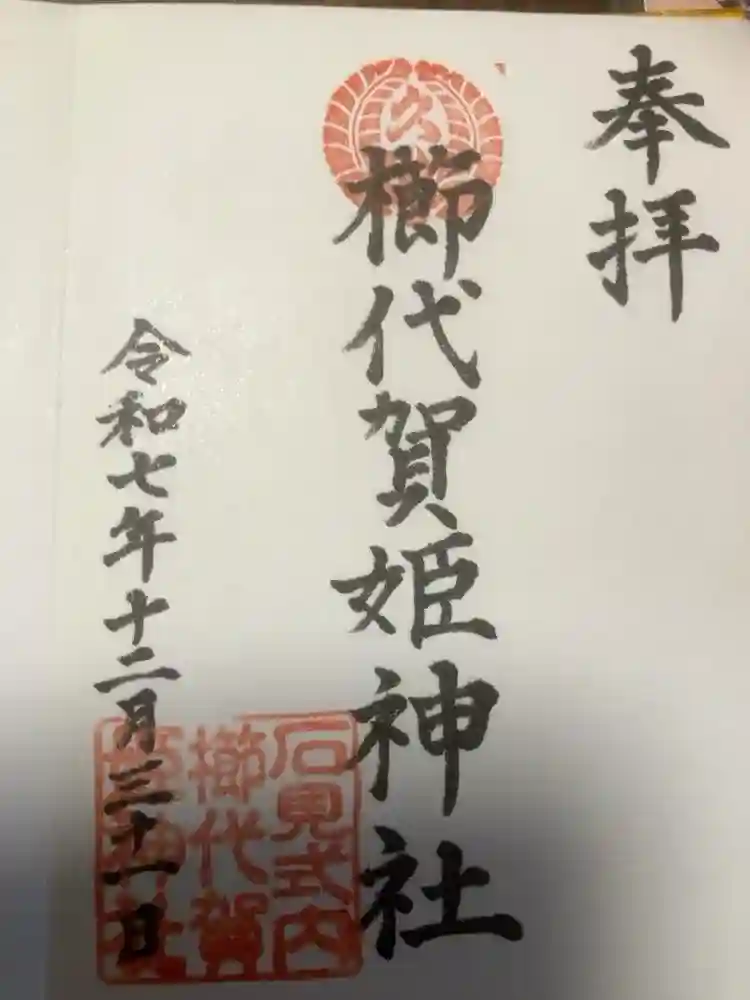 奉拝
櫛代賀姫神社
令和七年十二月三十一日
久
石見式内
櫛代賀
姫神社